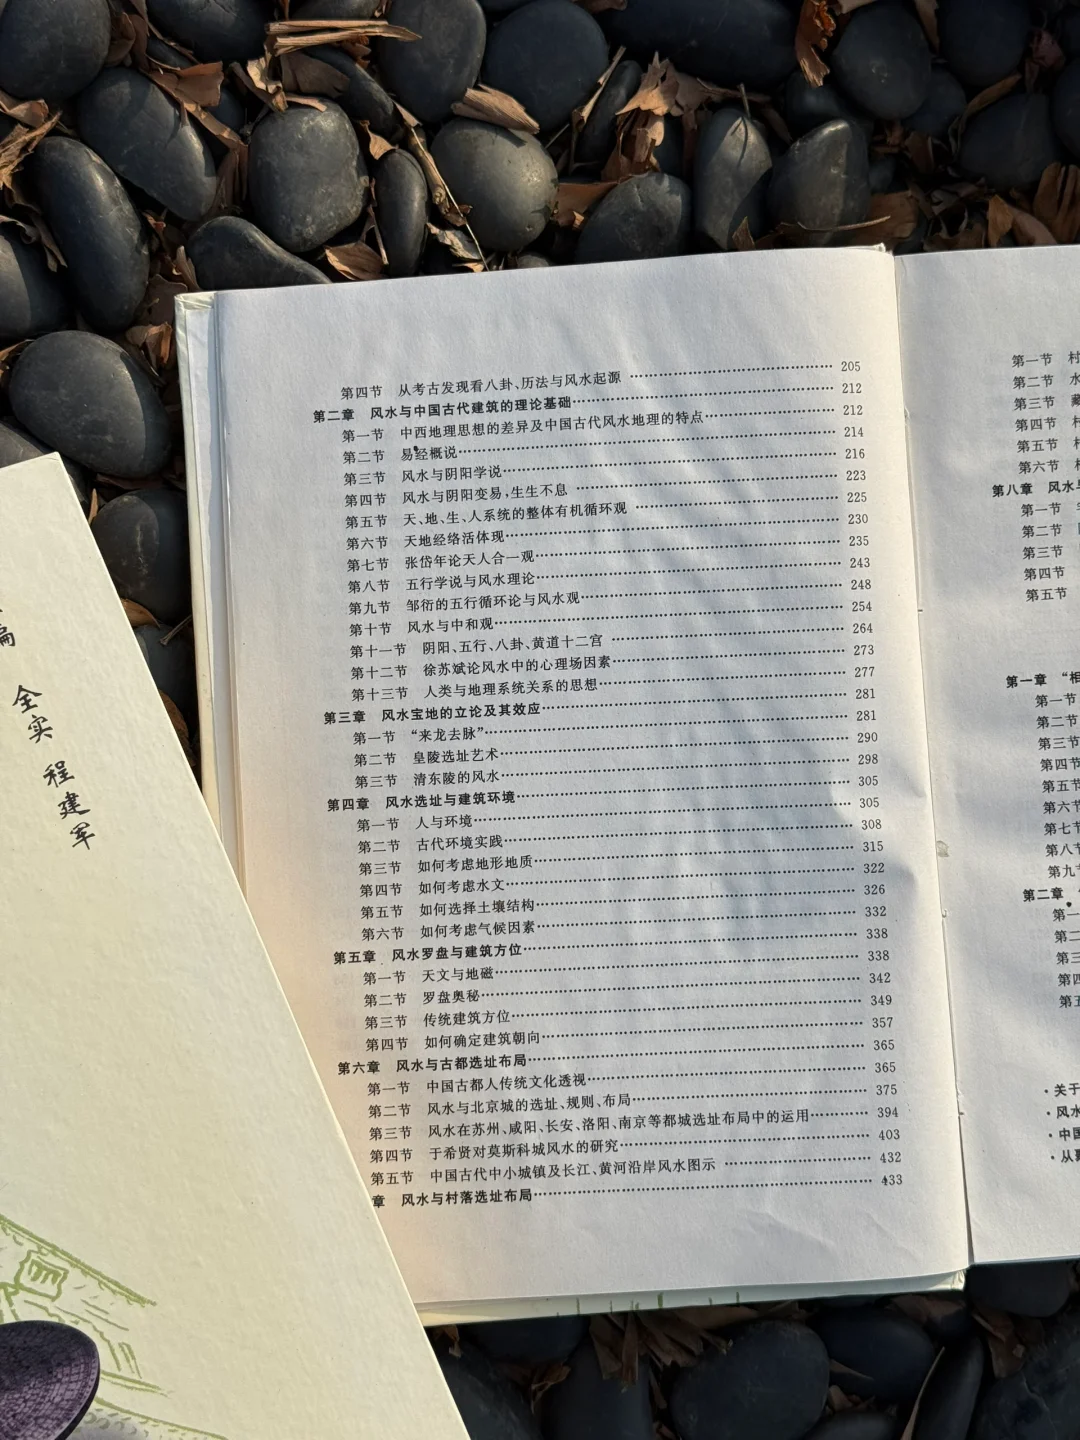 编
全实
程建军
第四节 从考古发现看八卦、历法与风水起源 …… 205
第二章 风水与中国古代建筑的理论基础 …… 212
第一节 中西地理思想的差异及中国古代风水地理的特点 …… 212
第二节 易经概说 …… 214
第三节 风水与阴阳学说 …… 216
第四节 风水与阴阳变易,生生不息 …… 223
第五节 天、地、生、人系统的整体有机循环观 …… 225
第六节 天地经络活体现 …… 230
第七节 张岱年论天人合一观 …… 235
第八节 五行学说与风水理论 …… 243
第九节 邹衍的五行循环论与风水观 …… 248
第十节 风水与中和观 …… 254
第十一节 阴阳、五行、八卦、黄道十二宫 …… 264
第十二节 徐苏斌论风水中的心理场因素 …… 273
第十三节 人类与地理系统关系的思想 …… 277
第三章 风水宝地的立论及其效应 …… 281
第一节 “来龙去脉” …… 281
第二节 皇陵选址艺术 …… 290
第三节 清东陵的风水 …… 298
第四章 风水选址与建筑环境 …… 305
第一节 人与环境 …… 305
第二节 古代环境实践 …… 308
第三节 如何考虑地形地质 …… 315
第四节 如何考虑水文 …… 322
第五节 如何选择土壤结构 …… 326
第六节 如何考虑气候因素 …… 332
第五章 风水罗盘与建筑方位 …… 338
第一节 天文与地磁 …… 338
第二节 罗盘奥秘 …… 342
第三节 传统建筑方位 …… 349
第四节 如何确定建筑朝向 …… 357
第六章 风水与古都选址布局 …… 365
第一节 中国古都人传统文化透视 …… 365
第二节 风水与北京城的选址、规则、布局 …… 375
第三节 风水在苏州、咸阳、长安、洛阳、南京等都城选址布局中的运用 …… 394
第四节 于希贤对莫斯科城风水的研究 …… 403
第五节 中国古代中小城镇及长江、黄河沿岸风水图示 …… 432
章 风水与村落选址布局 …… 433
第一节 村
第二节 水
第三节 藏
第四节 村
第五节 村
第六节 村
第八章 风水与
第一节
第二节
第三节
第四节
第五节
第一章 “相
第一节
第二节
第三节
第四节
第五节
第六节
第七节
第八节
第九节
第二章
第一
第二
第三
第四
第五
·关于
·风水
·中国
·从